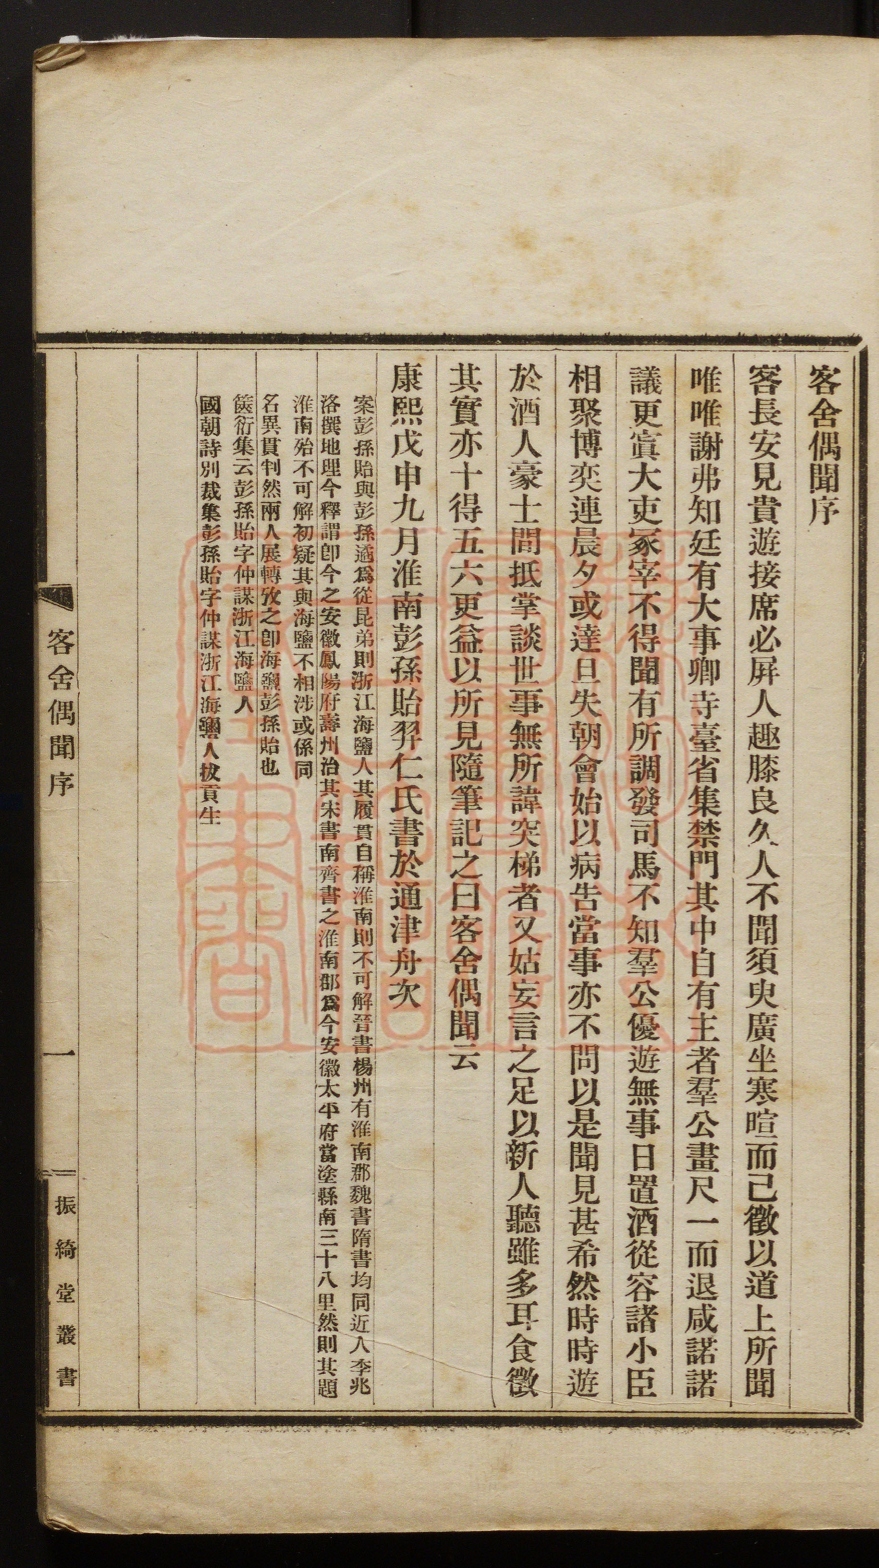 客舍偶聞序
客長安見貴遊接席必屏人趣膝良久人不聞須臾廣坐寒暄而已徵以道上所聞
唯唯謝弗知廷有大事卿寺臺省集禁門其中自有主者羣公畫尺一而退咸諾諾
議更寘大吏冢宰不得聞有所調發司馬不知羣公優遊無事日置酒從容諸小臣
相聚博奕連晨夕或達旦失朝會始以病告當事亦不問以是聞見甚希然時時遊
於酒人豪士間抵掌談世事無所諱突梯者又姑妄言之足以新人聽雖多耳食徵
其實亦十得五六更益以所見隨筆記之曰客舍偶聞云
康熙戊申九月淮南彭孫貽羿仁氏書於通津舟次
案彭孫貽與彭孫遹爲從昆弟則浙江海鹽人其履貫自稱淮南則不可解晉書楊州有淮南郡魏書隋書均同近人李兆
洛撰地理今釋謂卽今之安徽鳳陽府壽州治其宋書南齊書之淮南郡爲今安徽太平府當塗縣南三十八里然則其題
淮南殆不可解初疑其與海鹽不相涉或係同
名異貫判然兩人展轉攷之卽海鹽彭孫貽也
篋衍集云彭孫貽字仲謀浙江海鹽人
國朝詩別裁集彭孫貽字仲謀浙江海鹽人拔貢生
客舍偶聞序
一
振綺堂叢書